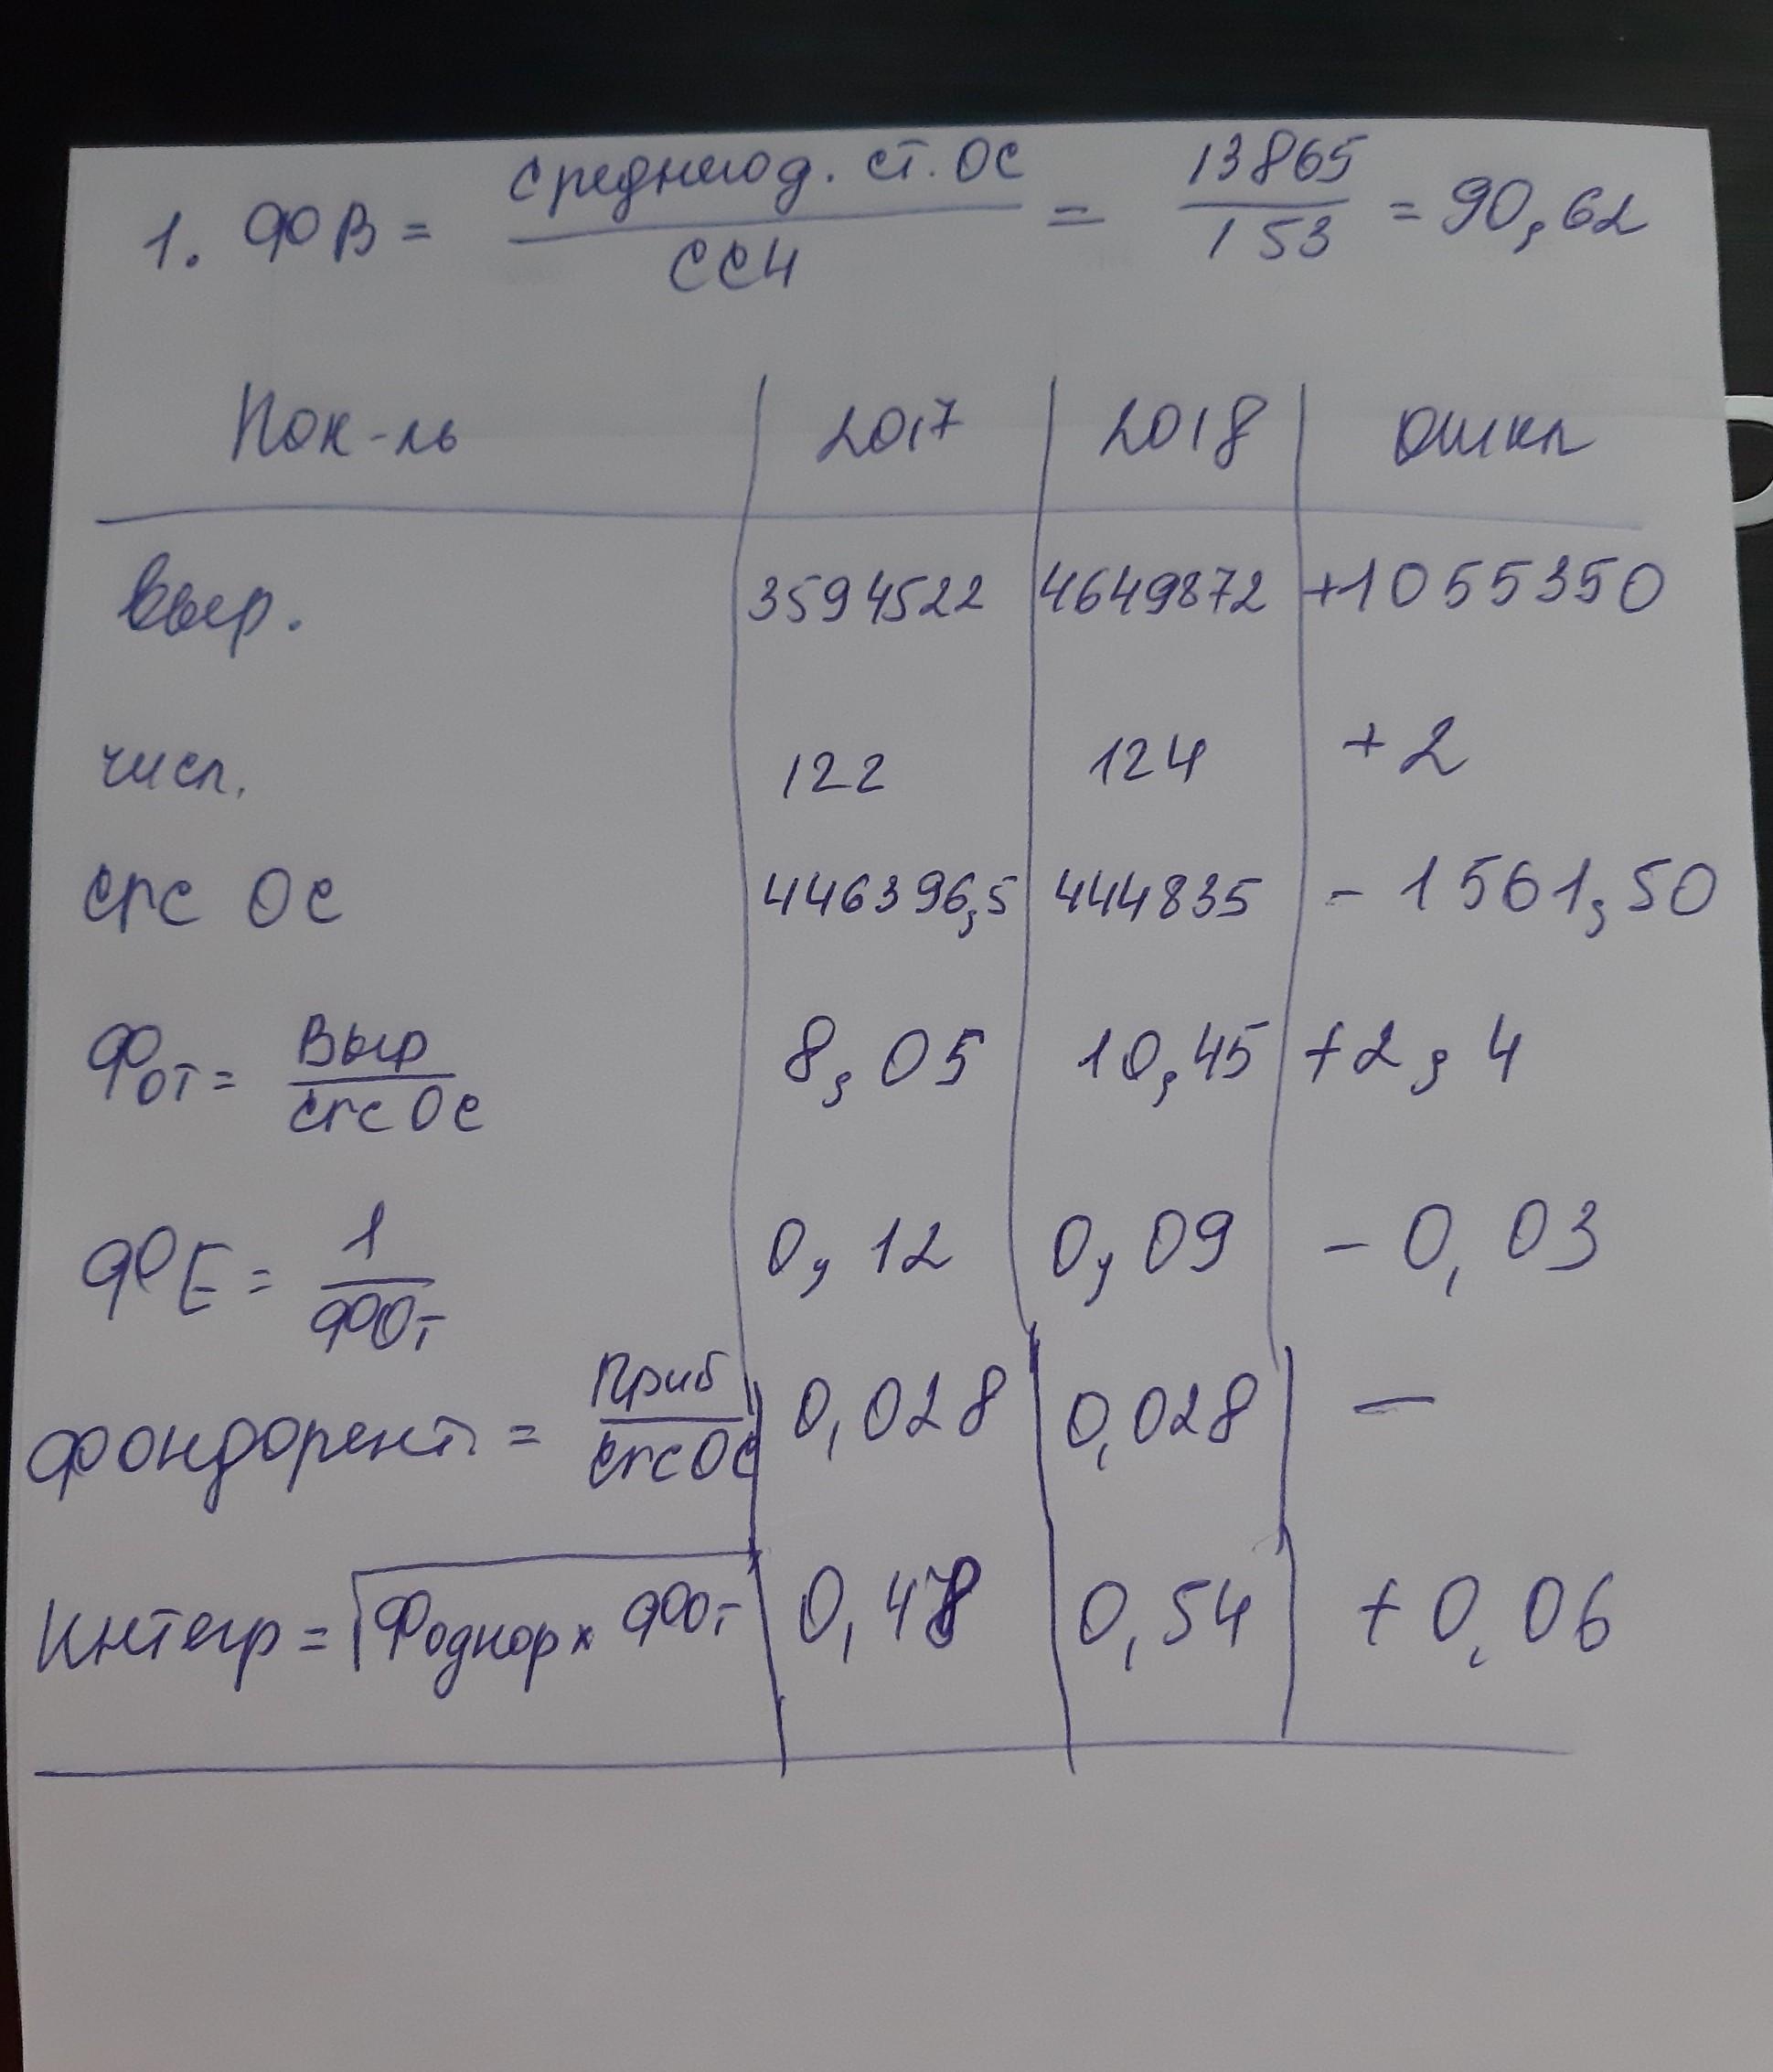 1. ФОВ = среднегод. ст. ОС / ССЧ = 13865 / 153 = 90,62
Пок-ль 2017 2018 откл
Выр. 3594522 4649872 +1055350
числ. 122 124 +2
сгс Ос 446396,5 444835 - 1561,50
Фот = Выр / сгс Ос 8,05 10,45 +2,4
ФОЕ = 1 / ФОт 0,12 0,09 - 0,03
фондорент. = Приб / сгс Ос 0,028 0,028 —
Интегр = √ х ФОт 0,48 0,54 + 0,06